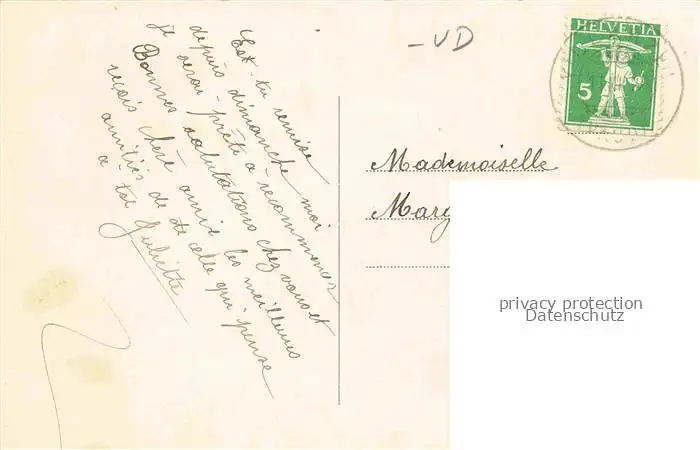 Est-tu remise
depuis dimanche moi
je serai prête à recommencer
Bonnes salutations chez vous et
reçois chère amie les meilleures
amitiés de de celle qui pense
a toi Juliette
- VD
HELVETIA
5
Mademoiselle
Marg
privacy protection
Datenschutz